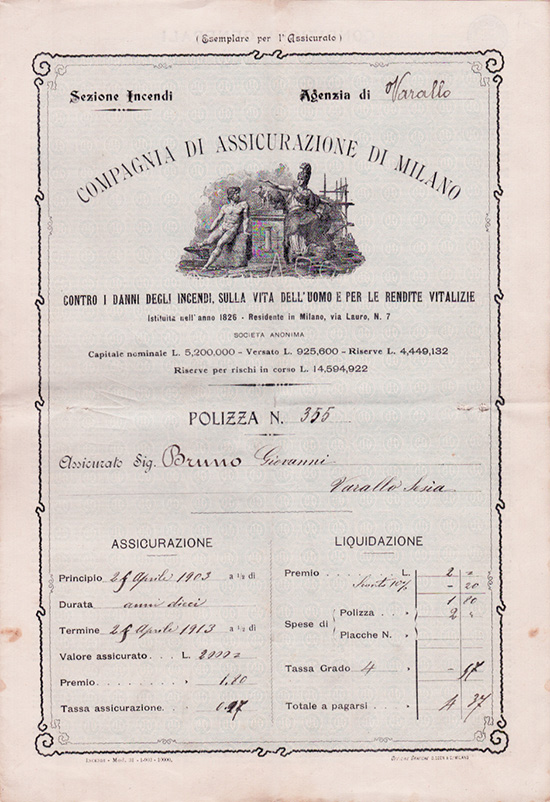 (Esemplare per l'Assicurato)
Sezione Incendi
Agenzia di Varallo
COMPAGNIA DI ASSICURAZIONE DI MILANO
CONTRO I DANNI DEGLI INCENDI, SULLA VITA DELL'UOMO E PER LE RENDITE VITALIZIE
Istituita nell'anno 1826 - Residente in Milano, via Lauro, N. 7
SOCIETÀ ANONIMA
Capitale nominale L. 5,200,000 - Versato L. 925,600 - Riserve L. 4,449,132
Riserve per rischi in corso L. 14,594,922
POLIZZA N. 355
Assicurato Sig. Bruno Giovanni
Varallo Sesia
ASSICURAZIONE
Principio Aprile 1903 a 1/2 dì
Durata anni dieci
Termine Aprile 1913 a 1/2 dì
Valore assicurato . . . L. 2000 =
Premio . . . . . . . . » 1.80
Tassa assicurazione . . .
LIQUIDAZIONE
Premio . . . . . . . . L. 2 =
Sconto 10% - 20
1 80
Spese di { Polizza . . . » 2 "
Placche N. . »
Tassa Grado 4 » - 57
Totale a pagarsi . . . » 4 37